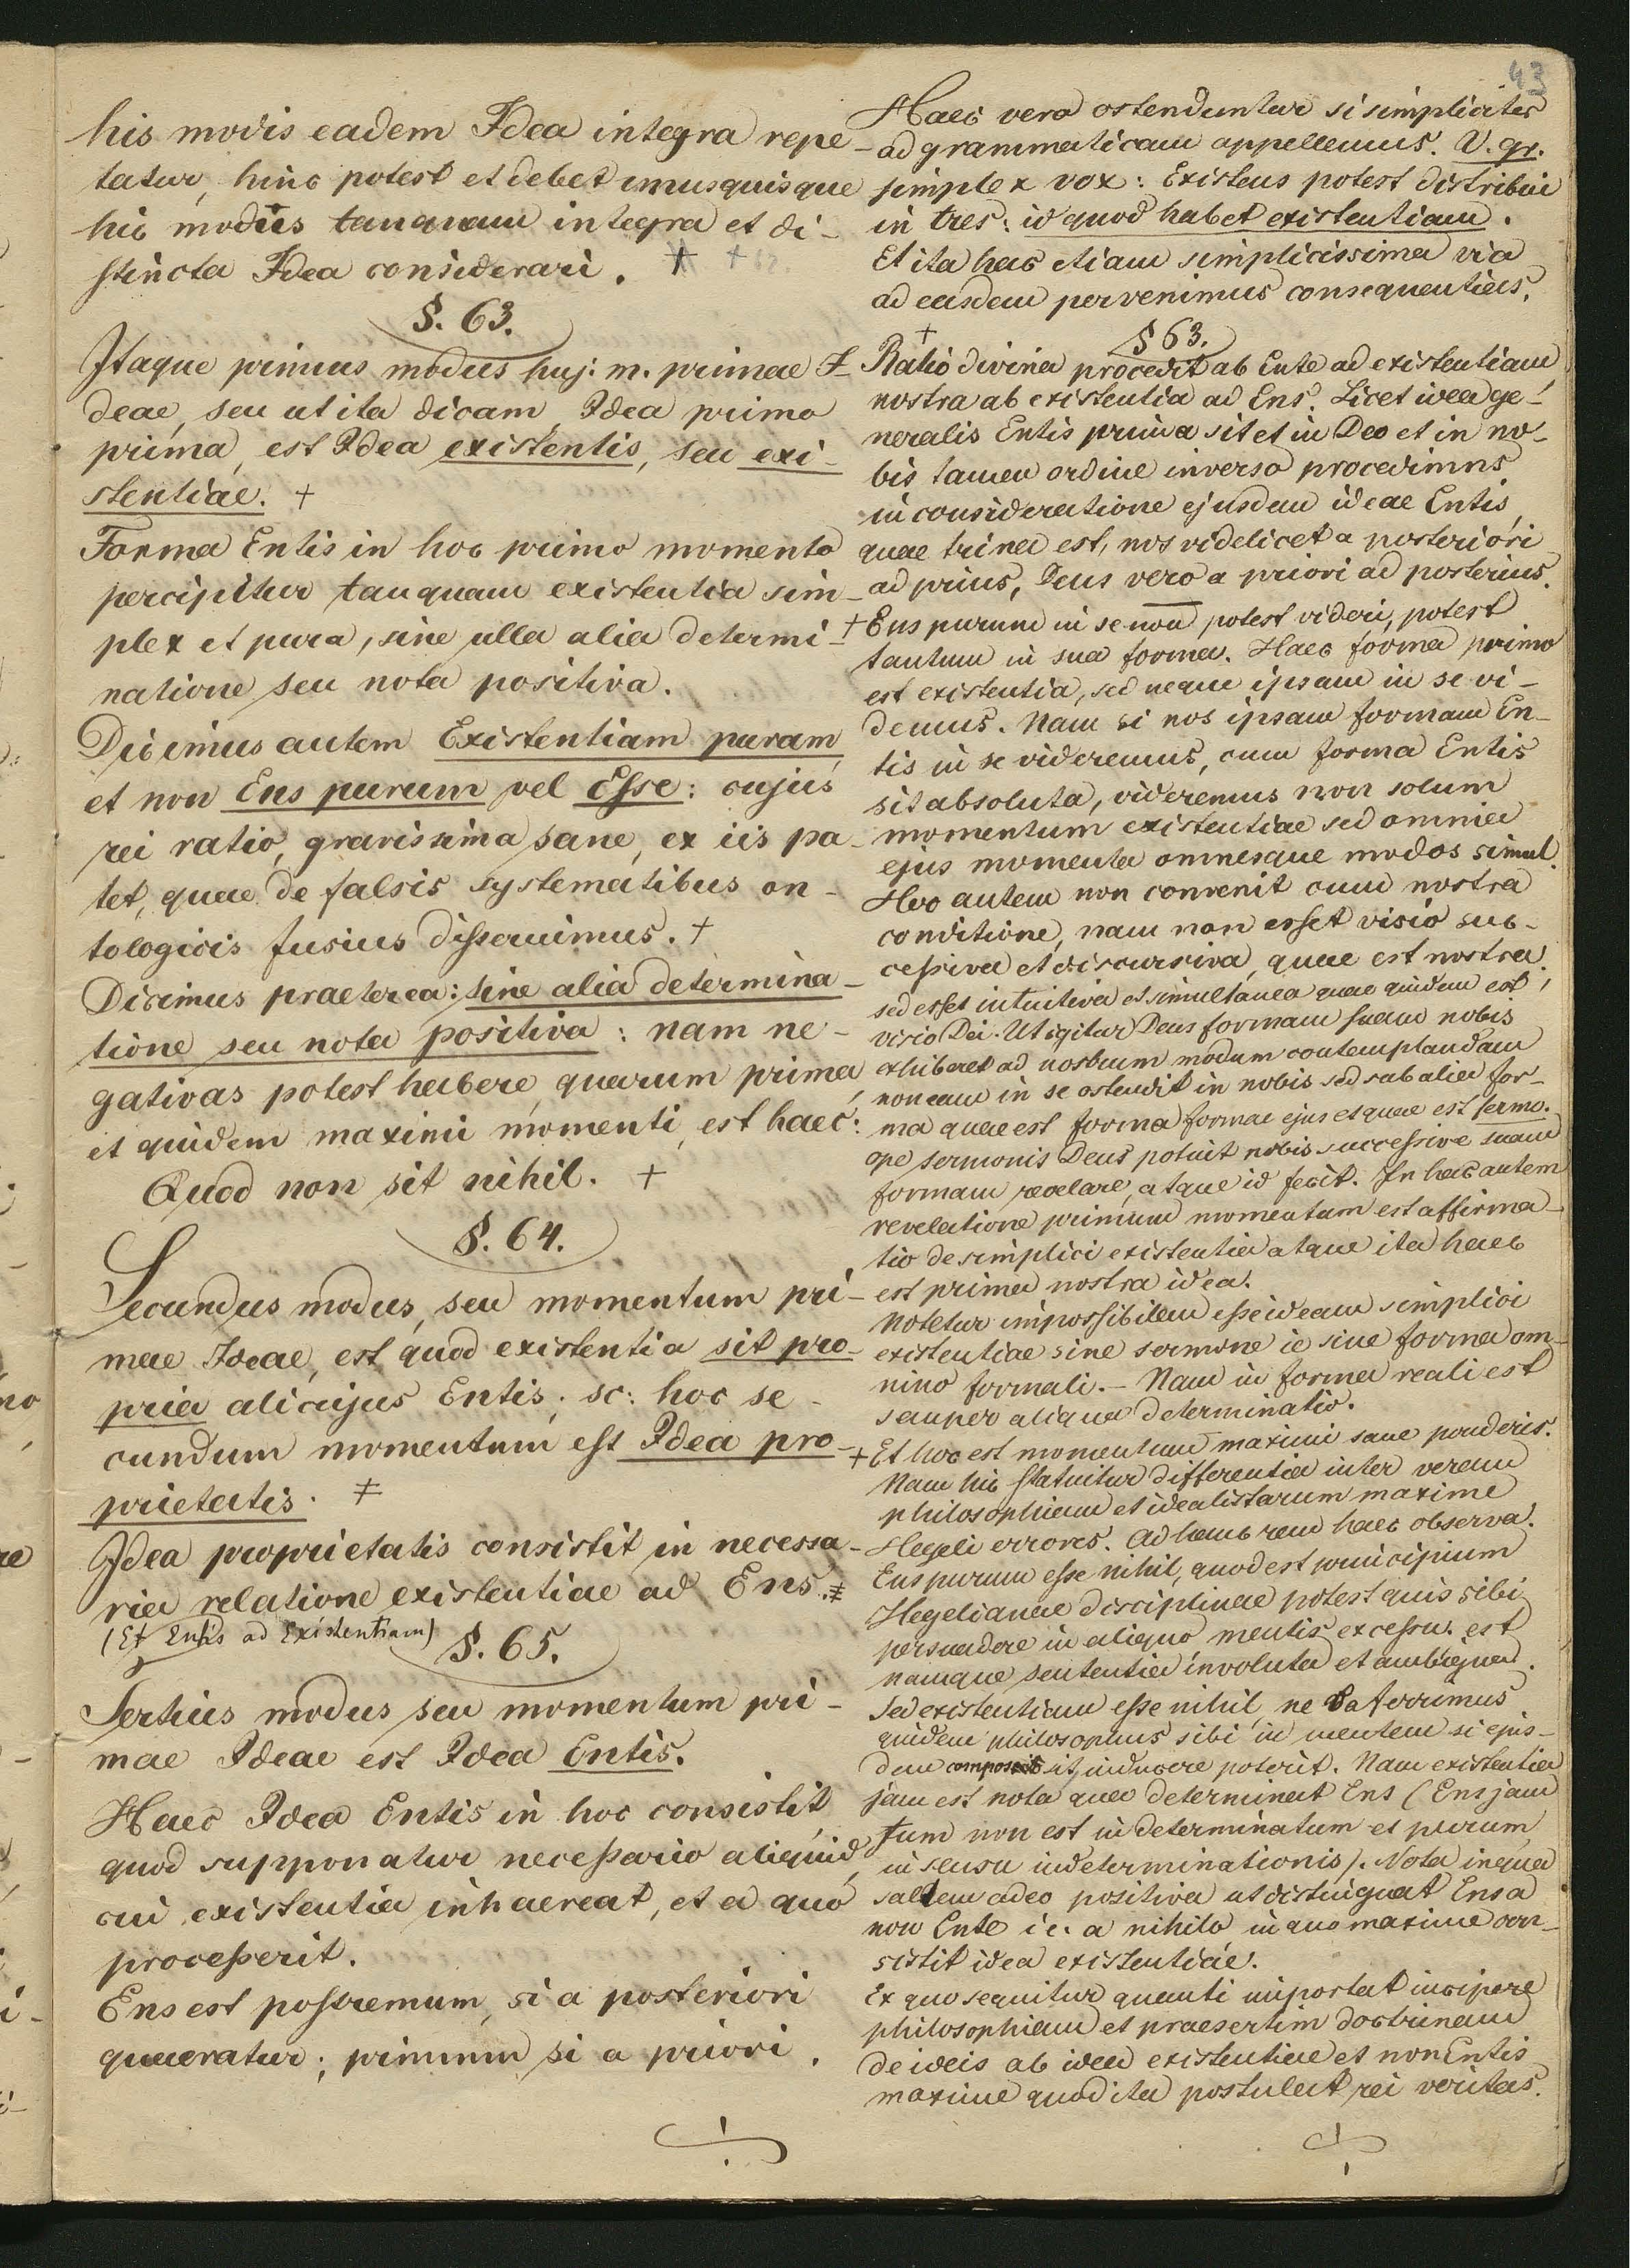 43
his modis eadem Idea integra repe-
tatur, hinc potest et debet unusquisque
hic modus tanquam integra et di-
stincta Idea considerari. + +
§. 63.
Itaque primus modus huj. m. primae I-
deae, seu ut ita dicam, Idea primo
prima, est Idea existentis, seu exi-
stentiae. +
Forma Entis in hoc primo momento
percipitur tanquam existentia sim-
plex et pura, sine ulla alia determi-
natione seu nota positiva.
Dicimus autem Existentiam puram
et non Ens purum vel Esse: cujus
rei ratio, gravissima sane, ex iis pa-
tet, quae de falsis systematibus on-
tologicis fusius disseruimus. +
Dicimus praeterea: sine alia determina-
tione seu nota positiva: nam ne-
gativas potest habere, quarum prima,
et quidem maximi momenti, est haec:
Quod non sit nihil. +
§. 64.
Secundus modus, seu momentum pri-
mae Ideae, est quod existentia sit pro-
pria alicujus Entis; sc: hoc se-
cundum momentum est Idea pro-
prietatis. ≠
Idea proprietatis consistit in necessa-
ria relatione existentiae ad Ens. ≠
(Et Entis ad Existentiam)
§. 65.
Tertius modus seu momentum pri-
mae Ideae est Idea Entis.
Haec Idea Entis in hoc consistit,
quod supponatur necessario aliquid,
cui existentia inhaereat, et a quo
processerit.
Ens est postremum, si a posteriori
quaeratur; primum si a priori.
Haec vero ostenduntur si simpliciter
ad grammaticam appellemus. V. gr.
simplex vox: Existens potest distribui
in tres: id quod habet existentiam.
Et ita hac etiam simplicissima via
ad easdem pervenimus consequentias.
§ 63.
+ Ratio divina procedit ab Ente ad existentiam
nostra ab existentia ad Ens. Licet idea ge-
neralis Entis prima sit et in Deo et in no-
bis tamen ordine inverso procedimus
in consideratione ejusdem ideae Entis,
quae trina est, nos videlicet a posteriori
ad prius, Deus vero a priori ad posterius.
+ Ens purum in se non potest videri, potest
tantum in sua forma. Haec forma primo
est existentia, sed neque ipsam in se vi-
demus. Nam si nos ipsam formam En-
tis in se videremus, cum forma Entis
sit absoluta, videremus non solum
momentum existentiae sed omnia
ejus momenta omnesque modos simul.
Hoc autem non convenit cum nostra
conditione, nam non esset visio suc-
cessiva et discursiva, quae est nostra,
sed esset intuitiva et simultanea quae quidem est
visio Dei. Ut igitur Deus formam suam nobis
exhiberet ad nostrum modum contemplandam
non eam in se ostendit in nobis sed sub alia for-
ma quae est forma formae ejus et quae est sermo.
ope sermonis Deus potuit nobis successive suam
formam revelare, atque id fecit. In hac autem
revelatione primum momentum est affirma-
tio de simplici existentia atque ita haec
est prima nostra idea.
Notetur impossibilem esse ideam simplici
existentiae sine sermone ie sine forma om-
nino formali. — Nam in forma reali est
semper aliqua determinatio.
+ Et hoc est momentum maximi sane ponderis.
Nam hic statuitur differentia inter veram
philosophiam et idealistarum maxime
Hegeli errores. Ad hanc rem haec observa.
Ens purum esse nihil, quod est principium
Hegelianae disciplinae potest quis sibi
persuadere in aliquo mentis excessu. est
namque sententia involuta et ambigua.
Sed existentiam esse nihil, ne
quidem philosophus sibi in mentem si ejus-
dem compos sit, inducere poterit. Nam existentia
jam est nota quae determinat Ens (Ens jam
tum non est indeterminatum et purum
in sensu indeterminationis). Nota inqua
saltem adeo positiva ut distinguat Ens a
non Ente ie. a nihilo, in quo maxime con-
sistit idea existentiae.
Ex quo sequitur quanti importat incipere
philosophiam et praesertim doctrinam
de ideis ab idea existentiae et non Entis
maxime quod ita postulat rei veritas.